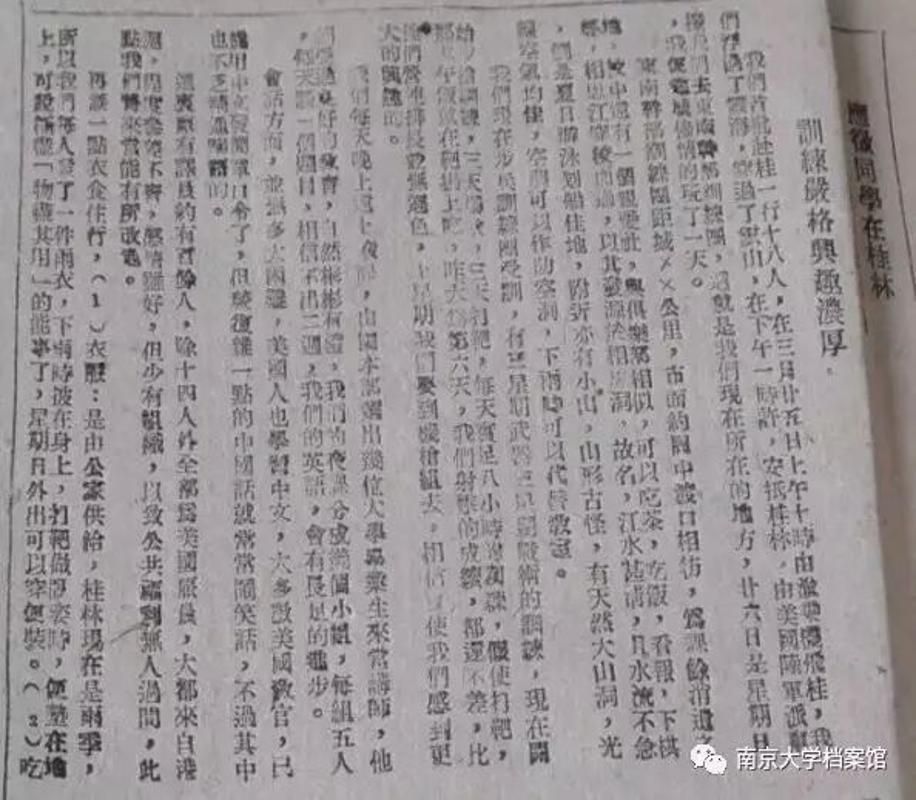 應徵同學在桂林
訓練嚴格興趣濃厚
我們首批赴桂一行十八人,在三月廿五日上午十時由渝乘機飛桂,我
們浮過了雲海,穿過了雲山,在下午一時許,安抵桂林,由美國陸軍派車
我們去東南幹部訓練團,這就是我們現在所在的地方,廿六日是星期日
,我便進城恣情的玩了一天。
東南幹部訓練團距城××公里,市面約同中渡口相彷,為課餘消遣之
地,校中還有一個親愛社,與俱樂部相似,可以吃茶,吃飯,看報,下棋
,相思江穿校而過,以其發源於相思洞,故名,江水甚清,且水流不急
,倒是夏日游泳划船佳地,附近亦有小山,山形古怪,有天然大山洞,光
線空氣均佳,空襲可以作防空洞,下雨時可以代替教室。
我們現在步兵訓練團受訓,有三星期武器三星期戰術的訓練,現在開
始步槍訓練,三天瞄準,三天打靶,每天實足八小時的訓練,假使打靶,
那末午飯就在靶場上吃,昨天為第六天,我們射擊的成績,都還不差,比
他們營連排長毫無遜色,上星期我們要到機槍組去,相信更使我們感到更
大的興趣的。
我們每天晚上還上夜課,由團本部選出幾位大學畢業生來當講師,他
們受過良好的教育,自然彬彬有禮,我們的夜課分成幾個小組,每組五人
,每天談一個題目,相信不出三週,我們的英語,會有長足的進步。
會話方面,並無多大困難,美國人也學習中文,大多數美國教官,已
能用中文發簡單口令了,但較復雜一點的中國話就常常鬧笑話,不過其中
也不乏精通華語的。
這裏原有譯員約有百餘人,除十四人外全部為美國雇員,大都來自港
滬,程度參差不齊,感情雖好,但少有組織,以致公共福利無人過問,此
點我們將來當能有所改進。
再談一點衣食住行,(1)衣服:是由公家供給,桂林現在是雨季,
所以我們每人發了一件雨衣,下雨時披在身上,打靶做臥姿時,便墊在地
上,可說極盡「物盡其用」的能事了,星期日外出可以穿便裝。(2)吃
南京大学档案馆